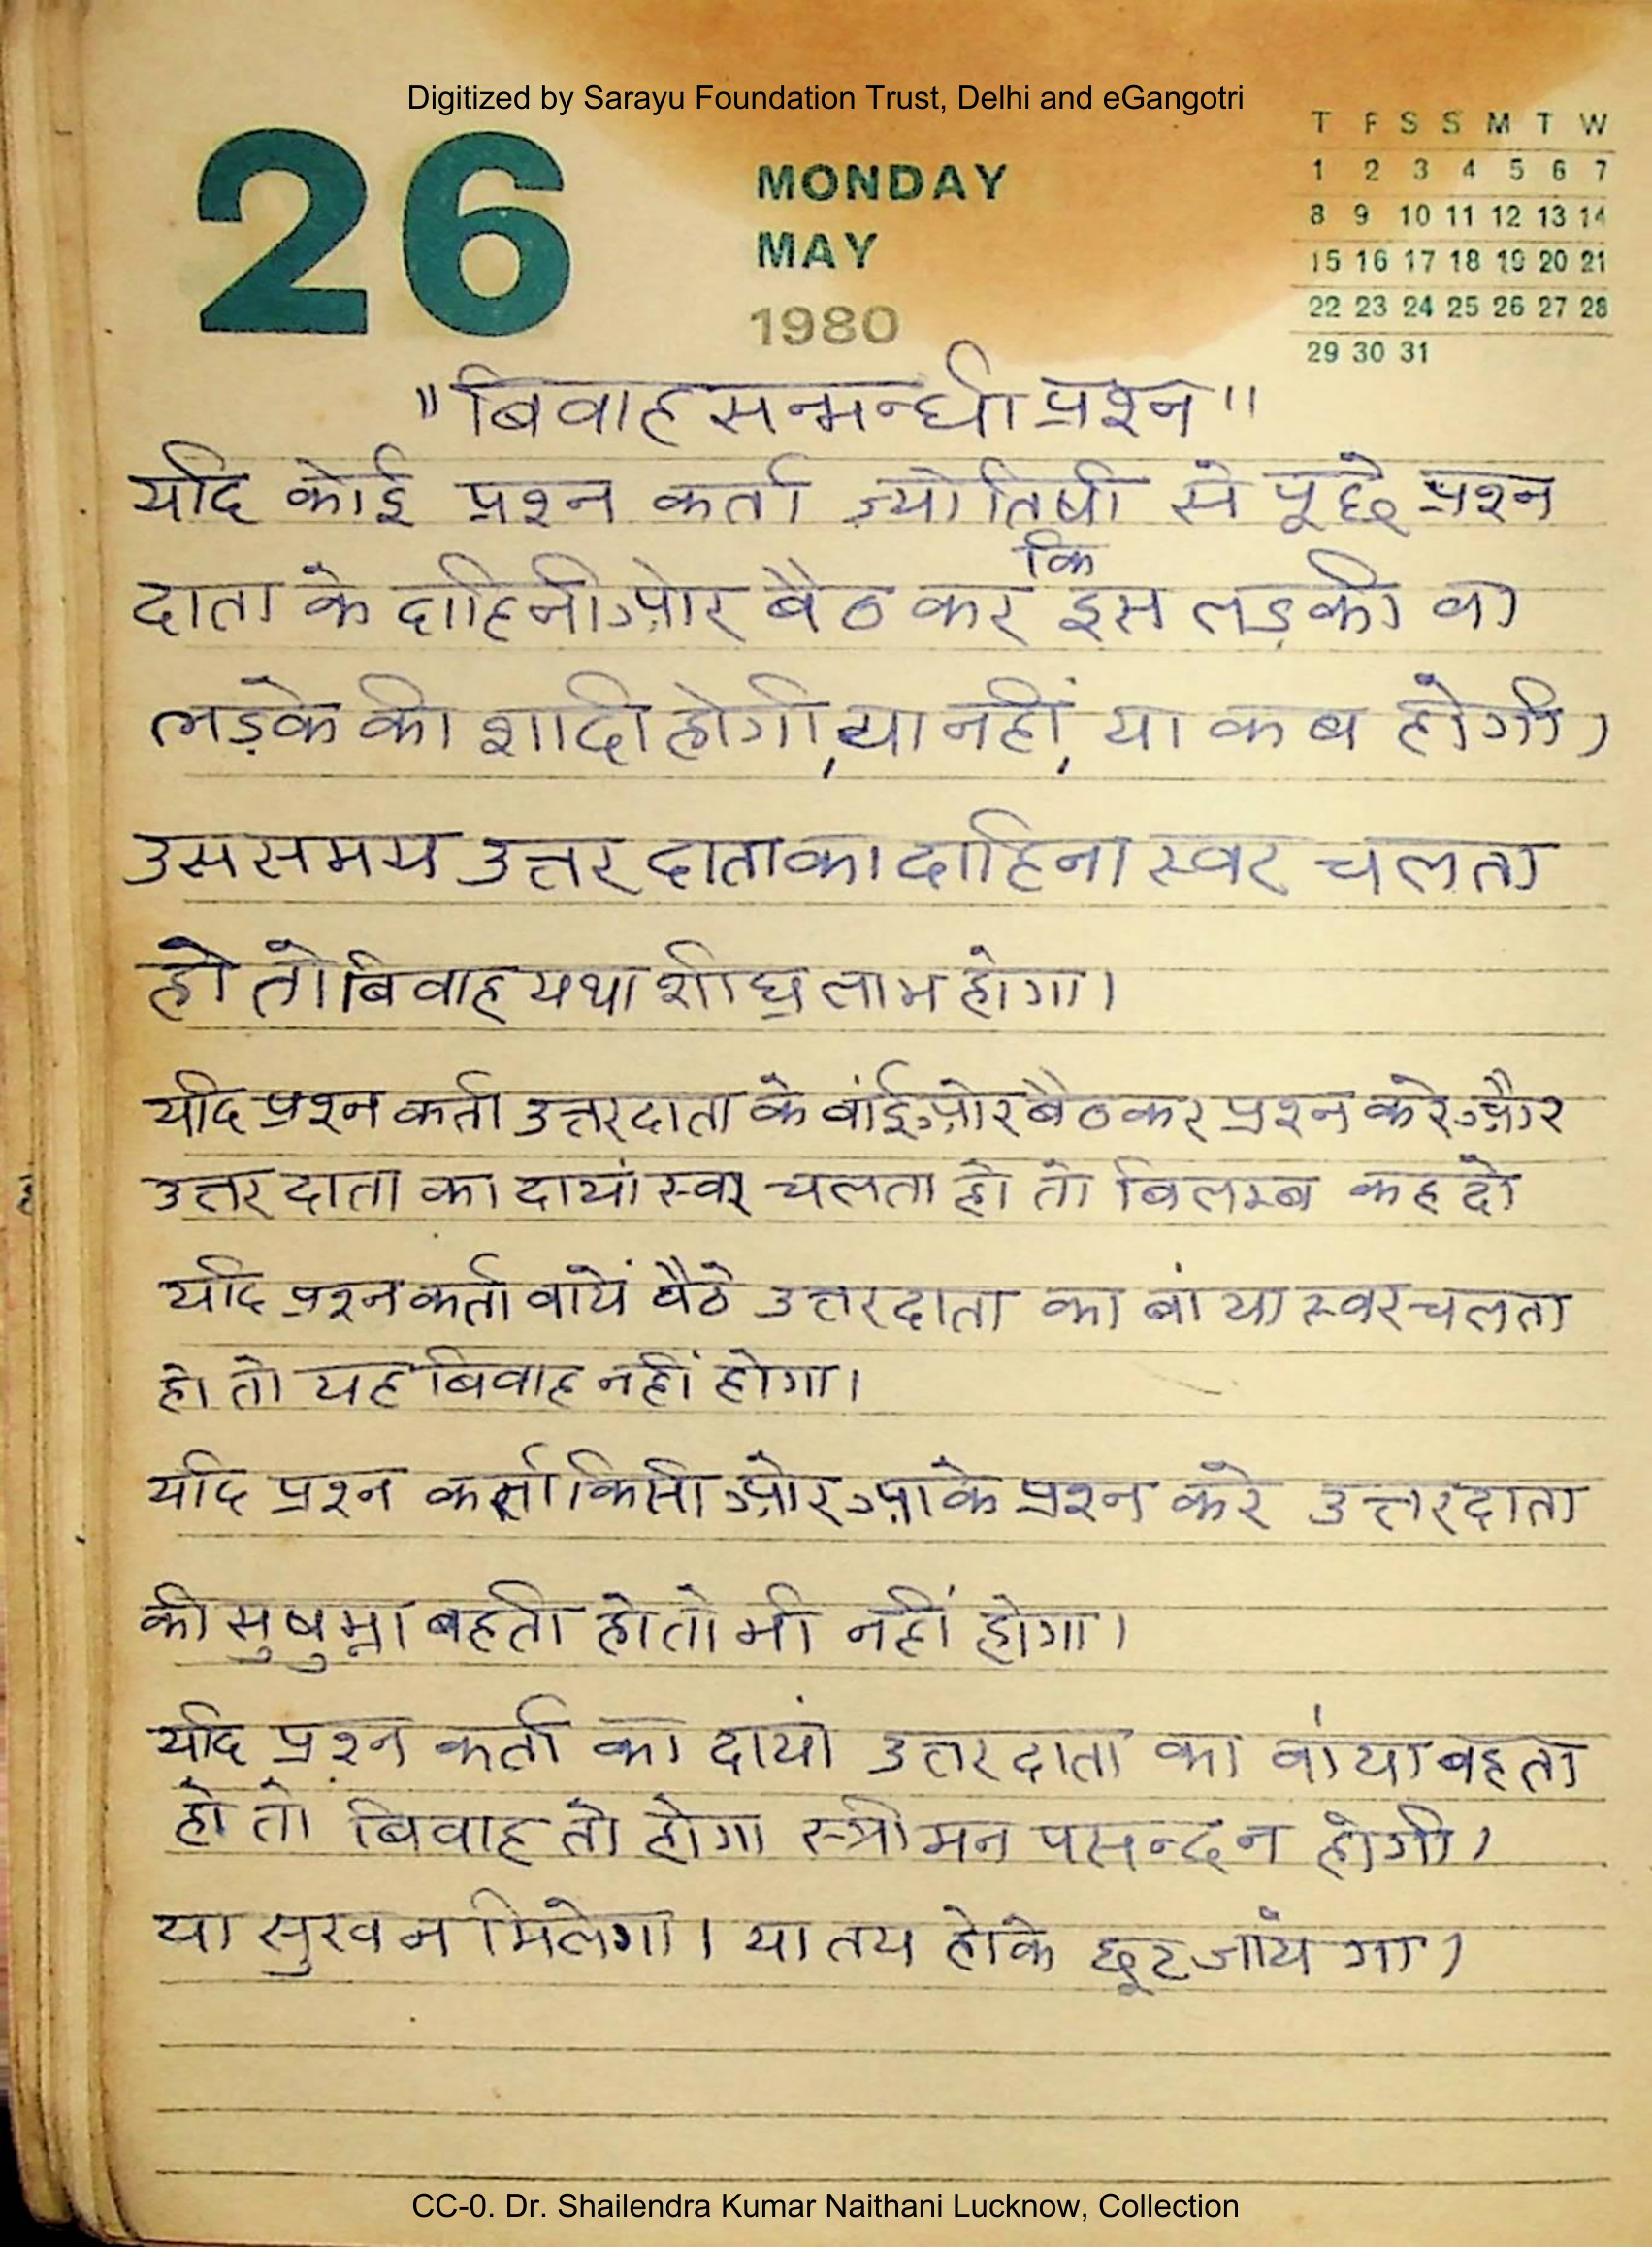 Digitized by Sarayu Foundation Trust, Delhi and eGangotri
26
MONDAY
MAY
1980
T F S S M T W
1 2 3 4 5 6 7
8 9 10 11 12 13 14
15 16 17 18 19 20 21
22 23 24 25 26 27 28
29 30 31
"बिवाह सन्मन्धी प्रश्न"
यदि कोई प्रश्न कर्ता ज्योतिषी से पूछे प्रश्न
दाता के दाहिनी ओर बैठ कर कि इस लड़की वा
लड़के की शादी होगी, या नहीं, या कब होगी।
उस समय उत्तर दाता का दाहिना स्वर चलता
हो तो बिवाह यथा शीघ्र लाभ होगा।
यदि प्रश्न कर्ता उत्तरदाता के वांई ओर बैठ कर प्रश्न करे और
उत्तर दाता का दायां स्वर चलता हो तो बिलम्ब कह दो
यदि प्रश्न कर्ता वांये बैठे उत्तरदाता का बांया स्वर चलता
हो तो यह बिवाह नहीं होगा।
यदि प्रश्न कर्ता किसी ओर आके प्रश्न करे उत्तरदाता
की सुषुम्ना बहती हो तो भी नहीं होगा।
यदि प्रश्न कर्ता का दायां उत्तर दाता का वांया बहता
हो तो बिवाह तो होगा स्त्री मन पसन्द न होगी।
या सुख न मिलेगा। या तय होके छूट जांयेगा।
CC-0. Dr. Shailendra Kumar Naithani Lucknow, Collection